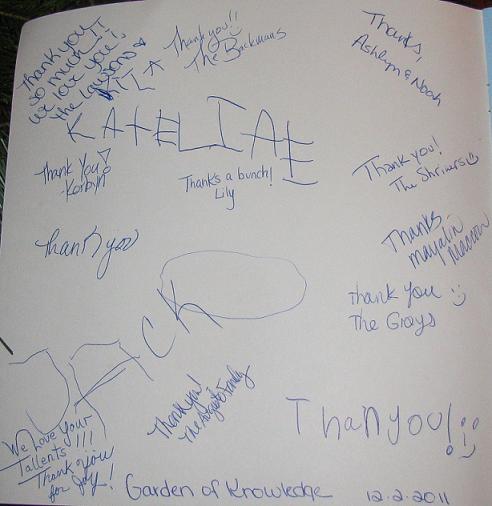 Thank you
so much!!
we love you!
the Lawsons &
Thank you!!
The Backmans
Thanks,
Ashlyn & Noah
KATELIAE
Thank you!
-Korbyn
Thanks a bunch!
Lily
Thank you!
The Shriners
Thank you
Thanks,
Mayalin
Thank you
The Grays
JACK
Thank you!
The
Family
Thanyou!
We Love Your
Tallents!!!
Thank you
for Joy!
Garden of Knowledge 12.2.2011